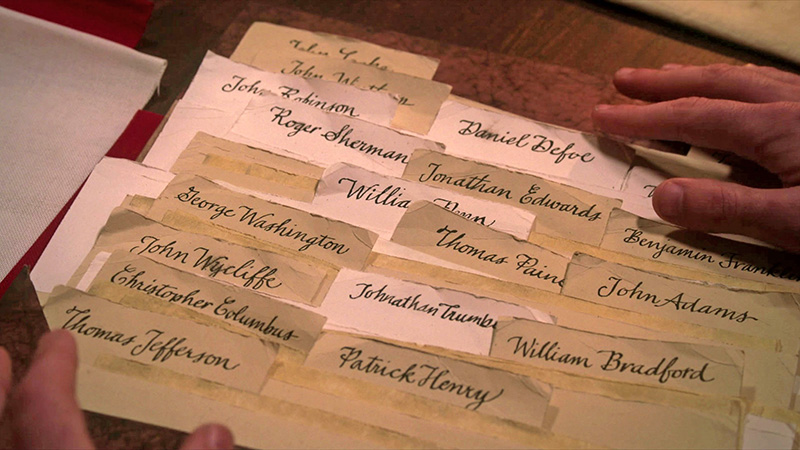 John
John Robinson
Roger Sherman
Daniel Defoe
William Penn
Jonathan Edwards
George Washington
Thomas Paine
Benjamin Franklin
John Wycliffe
John Adams
Christopher Columbus
Johnathan Trumbu
Thomas Jefferson
Patrick Henry
William Bradford